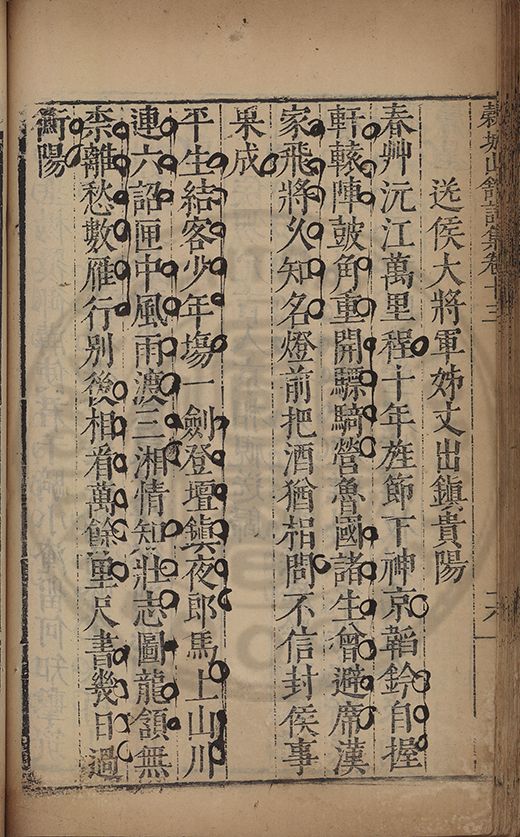 穀城山館詩集卷十三
送侯大將軍姊丈出鎮貴陽
春艸沅江萬里程十年旌節下神京韜鈐自握
軒轅陣鼓角重開驃騎營魯國諸生曾避席漢
家飛將久知名燈前把酒猶相問不信封侯事
果成
平生結客少年塲一劍登壇鎮夜郎馬上山川
連六詔匣中風雨渡三湘情知壯志圖龍頷無
柰離愁數雁行別後相看萬餘里尺書幾日過
衡陽